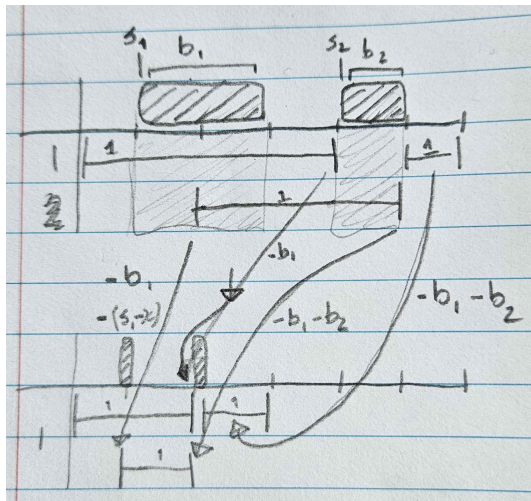 s₁ b₁ s₂ b₂
1 1 1
2 1
-b₁
-b₁
-(s₁-x)
-b₁-b₂ -b₁-b₂
1 1
1 1